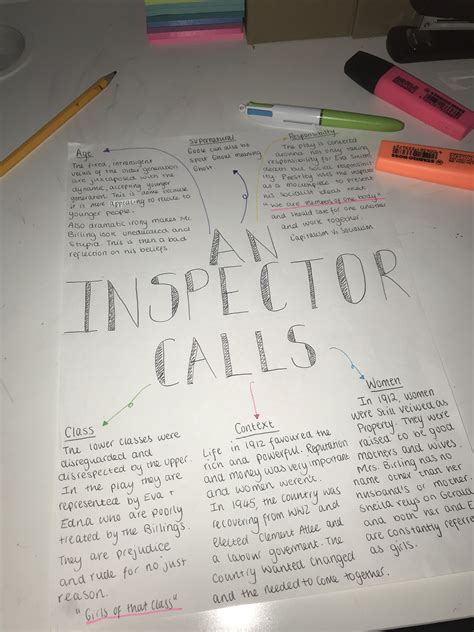 Age
The fixed, intransigent
views of the older generation
are juxtaposed with the
dynamic, accepting younger
generation. This is done because
it is more appealing to relate to
younger people.
Also dramatic irony makes Mr.
Birling look uneducated and
Stupid. This is then a bad
reflection on his beliefs
Supernatural
Goole can also be
spelt Ghoul meaning
Ghost.
Responsibility
The play is centred
around not only taking
responsibility for Eva Smiths
death but social responsibility.
Priestley uses the inspector
as a mouthpiece to present
his socialist ideas such
"we are members of one body"
and should care for one another
and work together.
Capitalism Vs Socialism
AN
INSPECTOR
CALLS
Class
The lower classes were
disreguarded and
disrespected by the upper.
In the play they are
represented by Eva +
Edna who are poorly
treated by the Birlings.
They are prejudice
and rude for no just
reason.
"Girls of that class"
Context
Life in 1912 favoured the
rich and powerful. Reputation
and money was very important
and women weren't.
In 1945, the country was
recovering from WW2 and
Elected Clement Atlee and
a labour goverment. The
Country wanted changed
and the needed to come together.
Women
In 1912, women
were still veiwed as
Property. They were
raised to be good
mothers and wives.
Mrs. Birling has no
name other than her
husband's or mother.
Sheila relys on Gerald
and both her and E
are constantly refere
as girls.